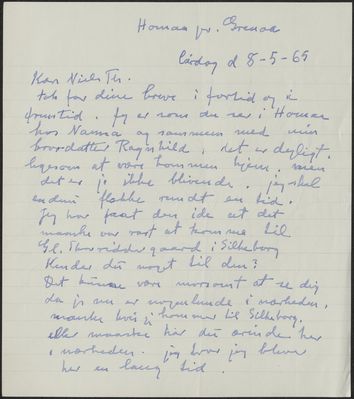 Homaa pr. Grenaa
Lørdag d 8-5-65
Kære Niels Th.
tak for dine breve i fortid og i
fremtid. Jeg er som du ser i Homaa
hos Nanna og sammen med min
brordatter Ragnhild, det er dejligt,
ligesom at være kommen hjem, men
det er jo ikke blivende. jeg skal
endnu flakke rundt en tid.
Jeg har faaet den ide at det
maaske var rart at komme til
Gl. Skovriddergaard i Silkeborg
Kender du noget til den?
Det kunne være morsomt at se dig
da jeg nu er nogenlunde i nærheden,
maaske hvis vi kommer til Silkeborg.
eller maaske har du ærinde her
i nærheden. jeg tror jeg bliver
her en lang tid.